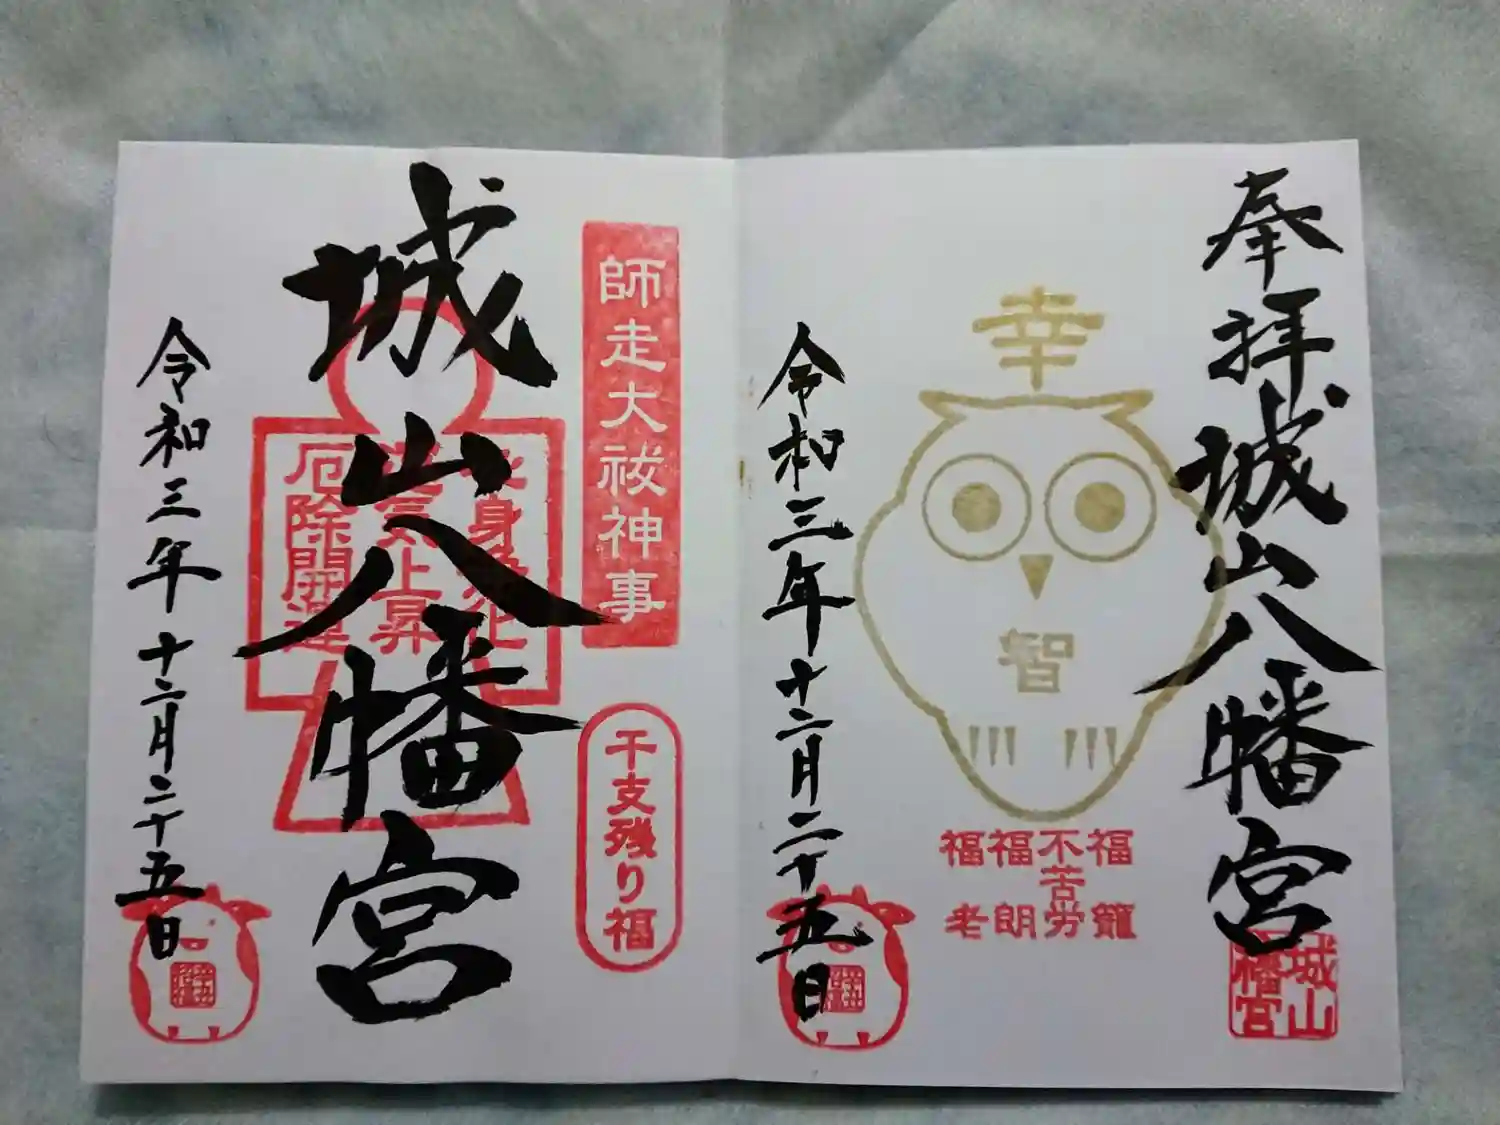 奉拝
城山八幡宮
幸
智
福 不苦労 福 福
籠 朗 老
城山八幡宮
令和三年十二月二十五日
師走大祓神事
干支残り福
城山八幡宮
厄除開運
令和三年十二月二十五日